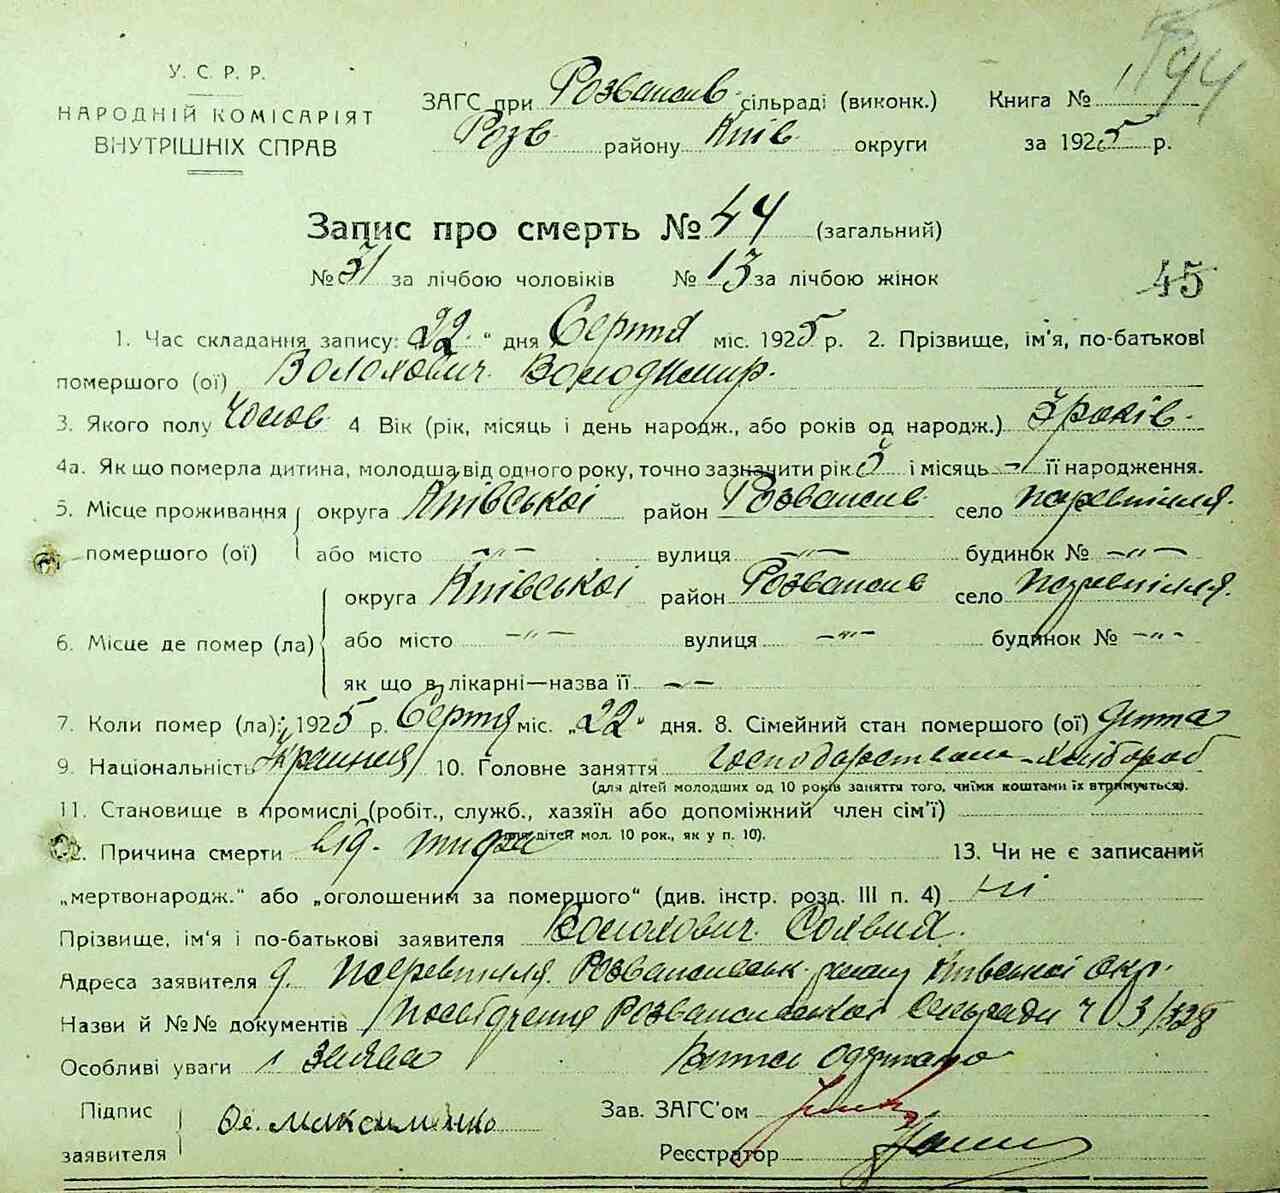 У. С. Р. Р.
НАРОДНІЙ КОМІСАРІЯТ
ВНУТРІШНІХ СПРАВ
ЗАГС при Розважив. сільраді (виконк.)
Розв. району Київ округи
Книга №
за 1925 р.
194
Запис про смерть № 44 (загальний)
№ 31 за лічбою чоловіків № 13 за лічбою жінок
45
1. Час складання запису: „22“ дня Серпня міс. 1925 р. 2. Прізвище, ім'я, по-батькові
помершого (ої) Волохович Володимир.
3. Якого полу Чолов 4 Вік (рік, місяць і день народж., або років од народж.) 3 років.
4а. Як що померла дитина, молодша від одного року, точно зазначити рік 3 і місяць - її народження.
5. Місце проживання помершого (ої)
округа Київської район Розважив село
або місто -„- вулиця -„- будинок № -„-
6. Місце де помер (ла)
округа Київської район Розважив село
або місто -„- вулиця -„- будинок № -„-
як що в лікарні—назва її - -
7. Коли помер (ла): 1925 р. Серпня міс. „22“ дня. 8. Сімейний стан помершого (ої) дитя
9. Національність 10. Головне заняття
(для дітей молодших од 10 років заняття того, чиїми коштами їх втримується).
11. Становище в промислі (робіт., служб., хазяїн або допоміжний член сім'ї)
(для дітей мол. 10 рок., як у п. 10).
12. Причина смерти від. тифа 13. Чи не є записаний
„мертвонародж.“ або „оголошеним за помершого“ (див. інстр. розд. III п. 4) ні
Прізвище, ім'я і по-батькові заявителя Волохович
Адреса заявителя Київської окр.
Назви й №№ документів Розважівської Сільради ч
Особливі уваги
Підпис заявителя Максименко
Зав. ЗАГС'ом
Реєстратор